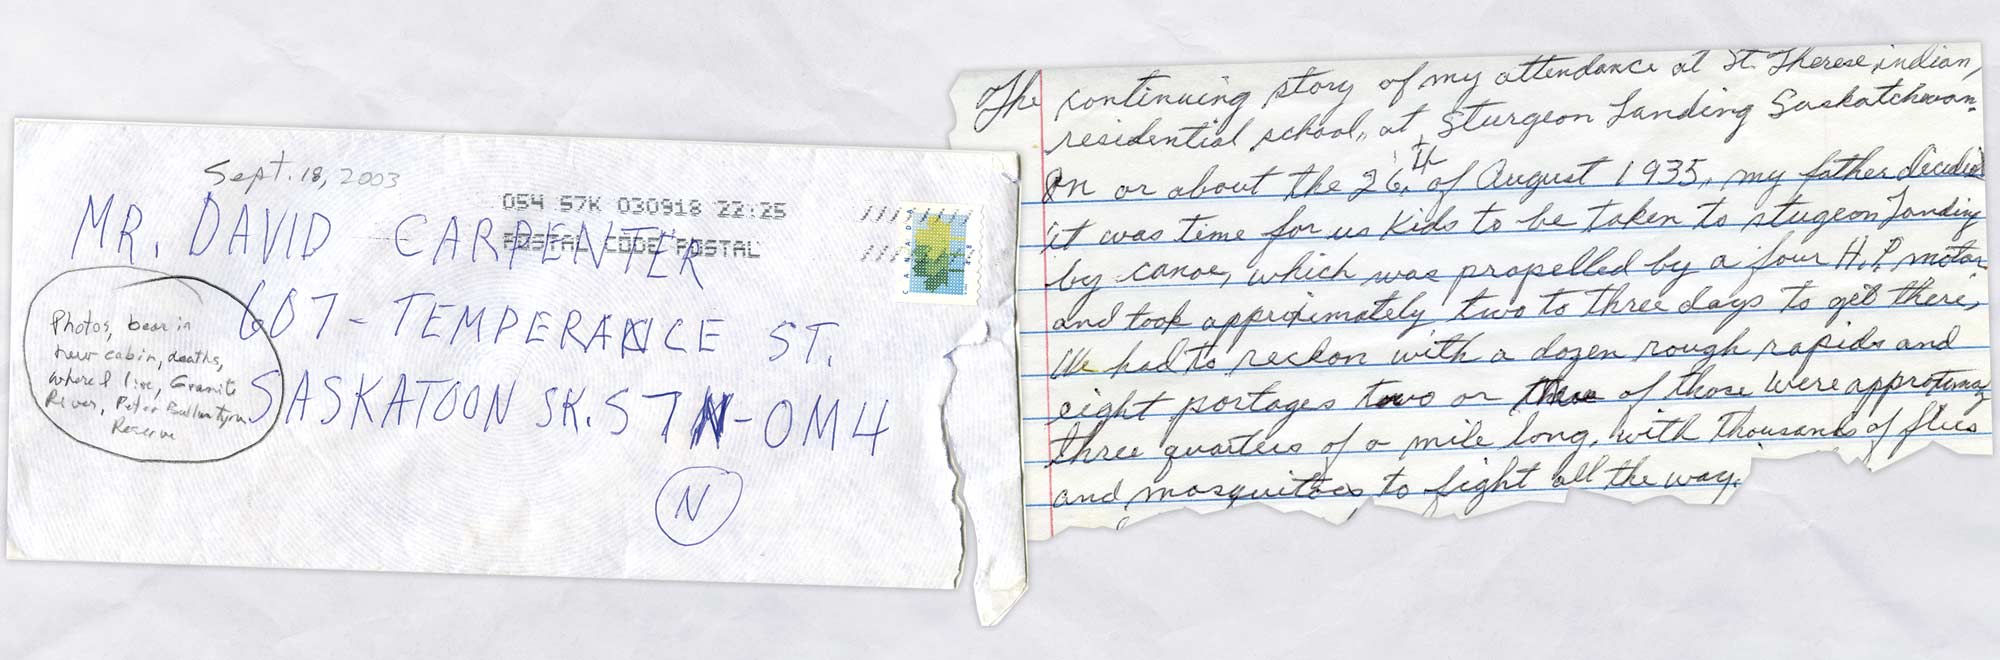 Sept. 18, 2003
054 S7K 030918 22:25
POSTAL CODE POSTAL
CANADA
MR. DAVID CARPENTER
607 - TEMPERANCE ST.
SASKATOON SK. S7N-0M4
N
Photos, bear in
new cabin, deaths,
where I live, Granite
River, Peter Ballantyne
Reserve
The continuing story of my attendance at St. Therese indian,
residential school, at Sturgeon Landing Saskatchewan.
On or about the 26,th of August 1935, my father decided
it was time for us kids to be taken to stugeon Landing
by canoe, which was propelled by a four H.P. motor
and took approximately two to three days to get there,
We had to reckon with a dozen rough rapids and
eight portages two or three of those were approximay
three quarters of a mile long, with thousands of flies
and mosquitoes, to fight all the way.